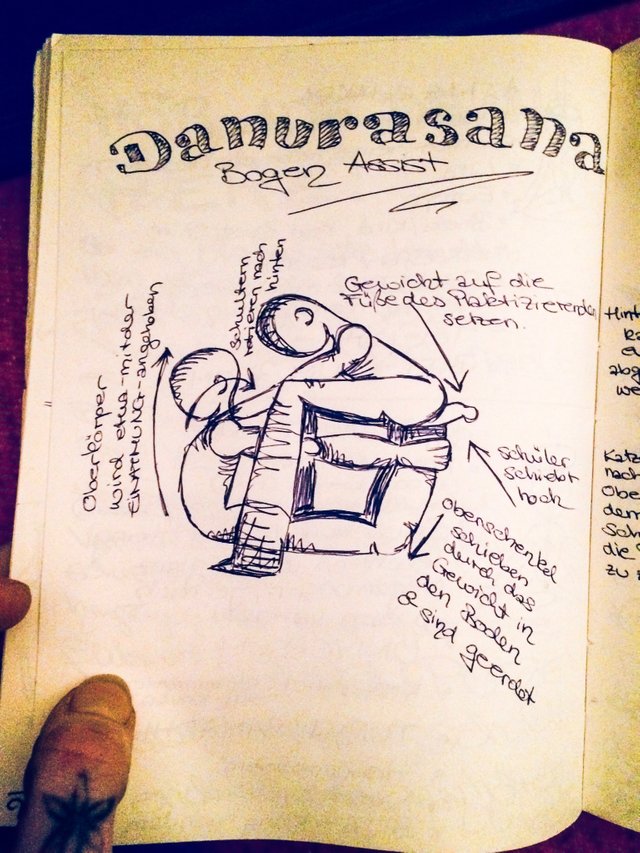 Danurasana
Bogen Assist
Schultern
rotieren nach
hinten
Gewicht auf die
Füße des Praktizierenden
setzen.
Oberkörper
wird etwa mit der
EINATMUNG angehoben
Schüler
schiebt
hoch
Obenschenkel
schieben
durch das
Gewicht in
den Boden
& sind geerdet
Hint
abg
we
Katz
nach
Obe
dem
Sch
die
zu